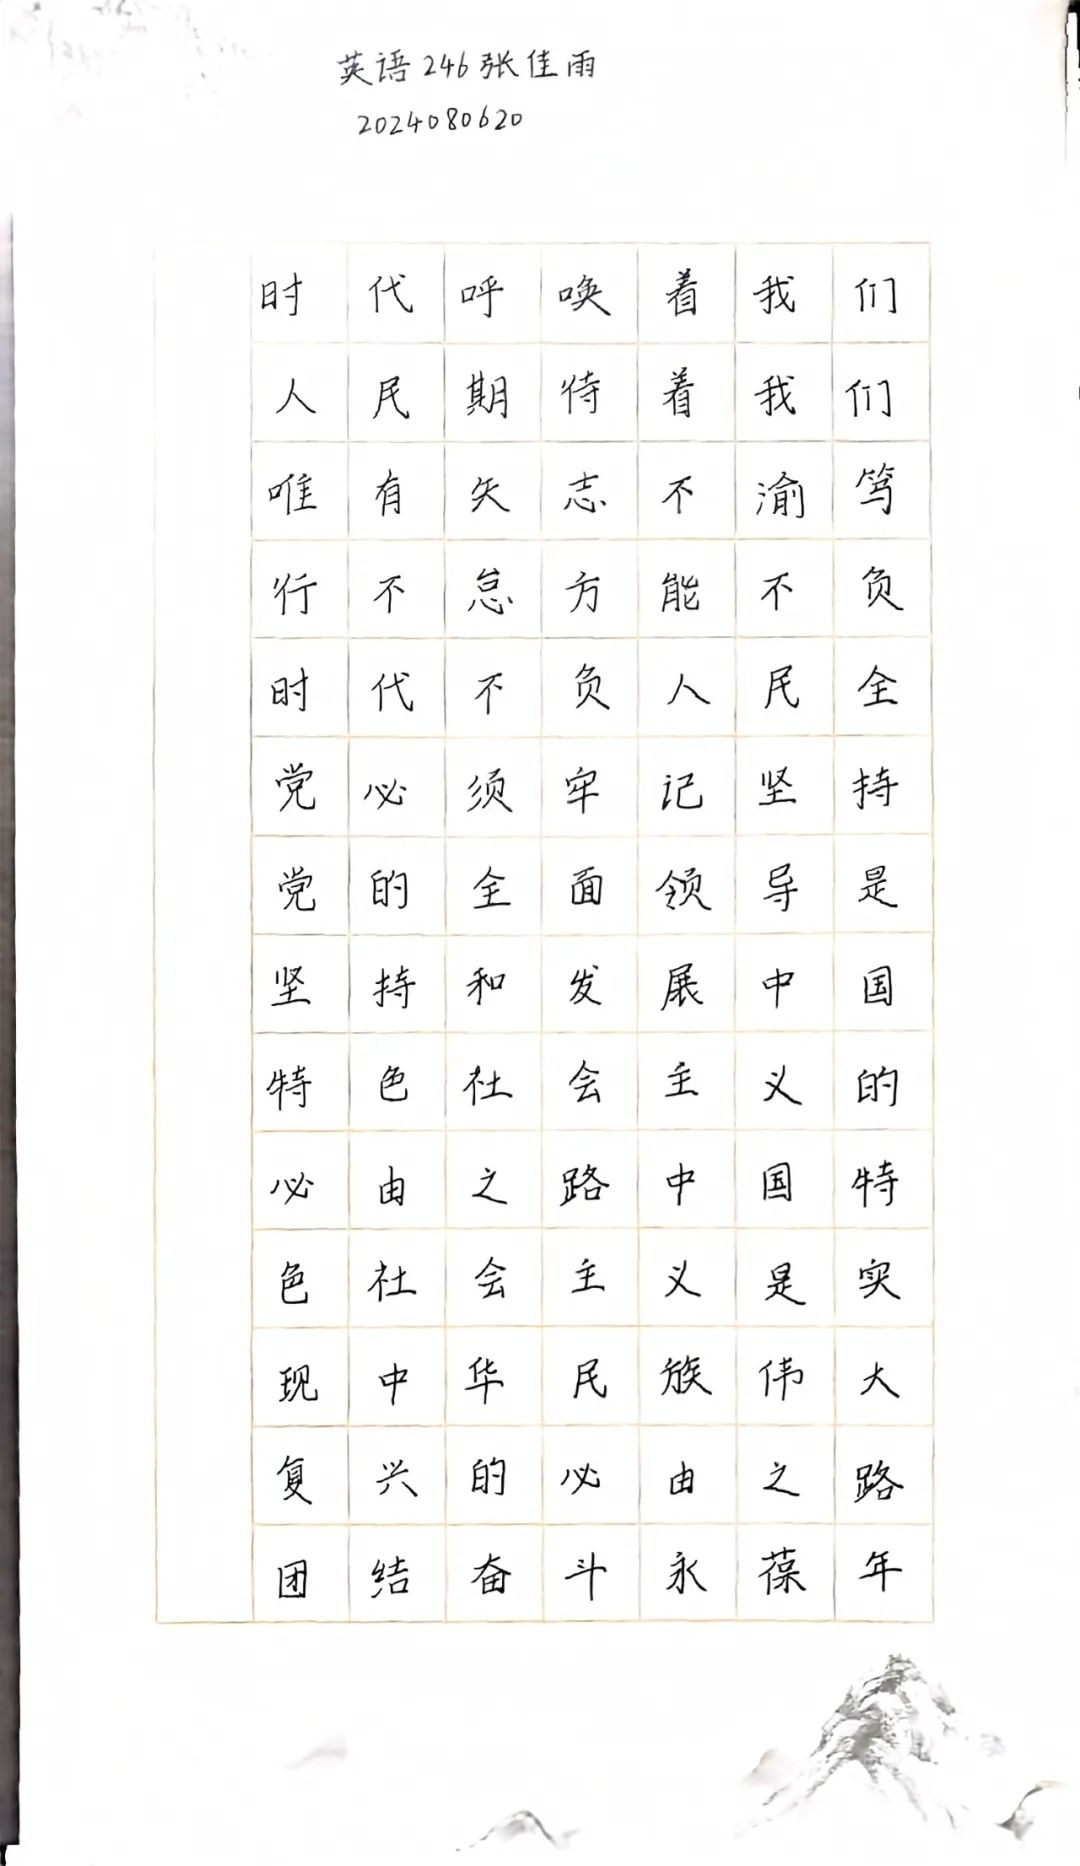 英语246张佳雨
2024080620
时代呼唤着我们
人民期待着我们
唯有矢志不渝笃
行不怠方能不负
时代不负人民全
党必须牢记坚持
党的全面领导是
坚持和发展中国
特色社会主义的
必由之路中国特
色社会主义是实
现中华民族伟大
复兴的必由之路
团结奋斗永葆年